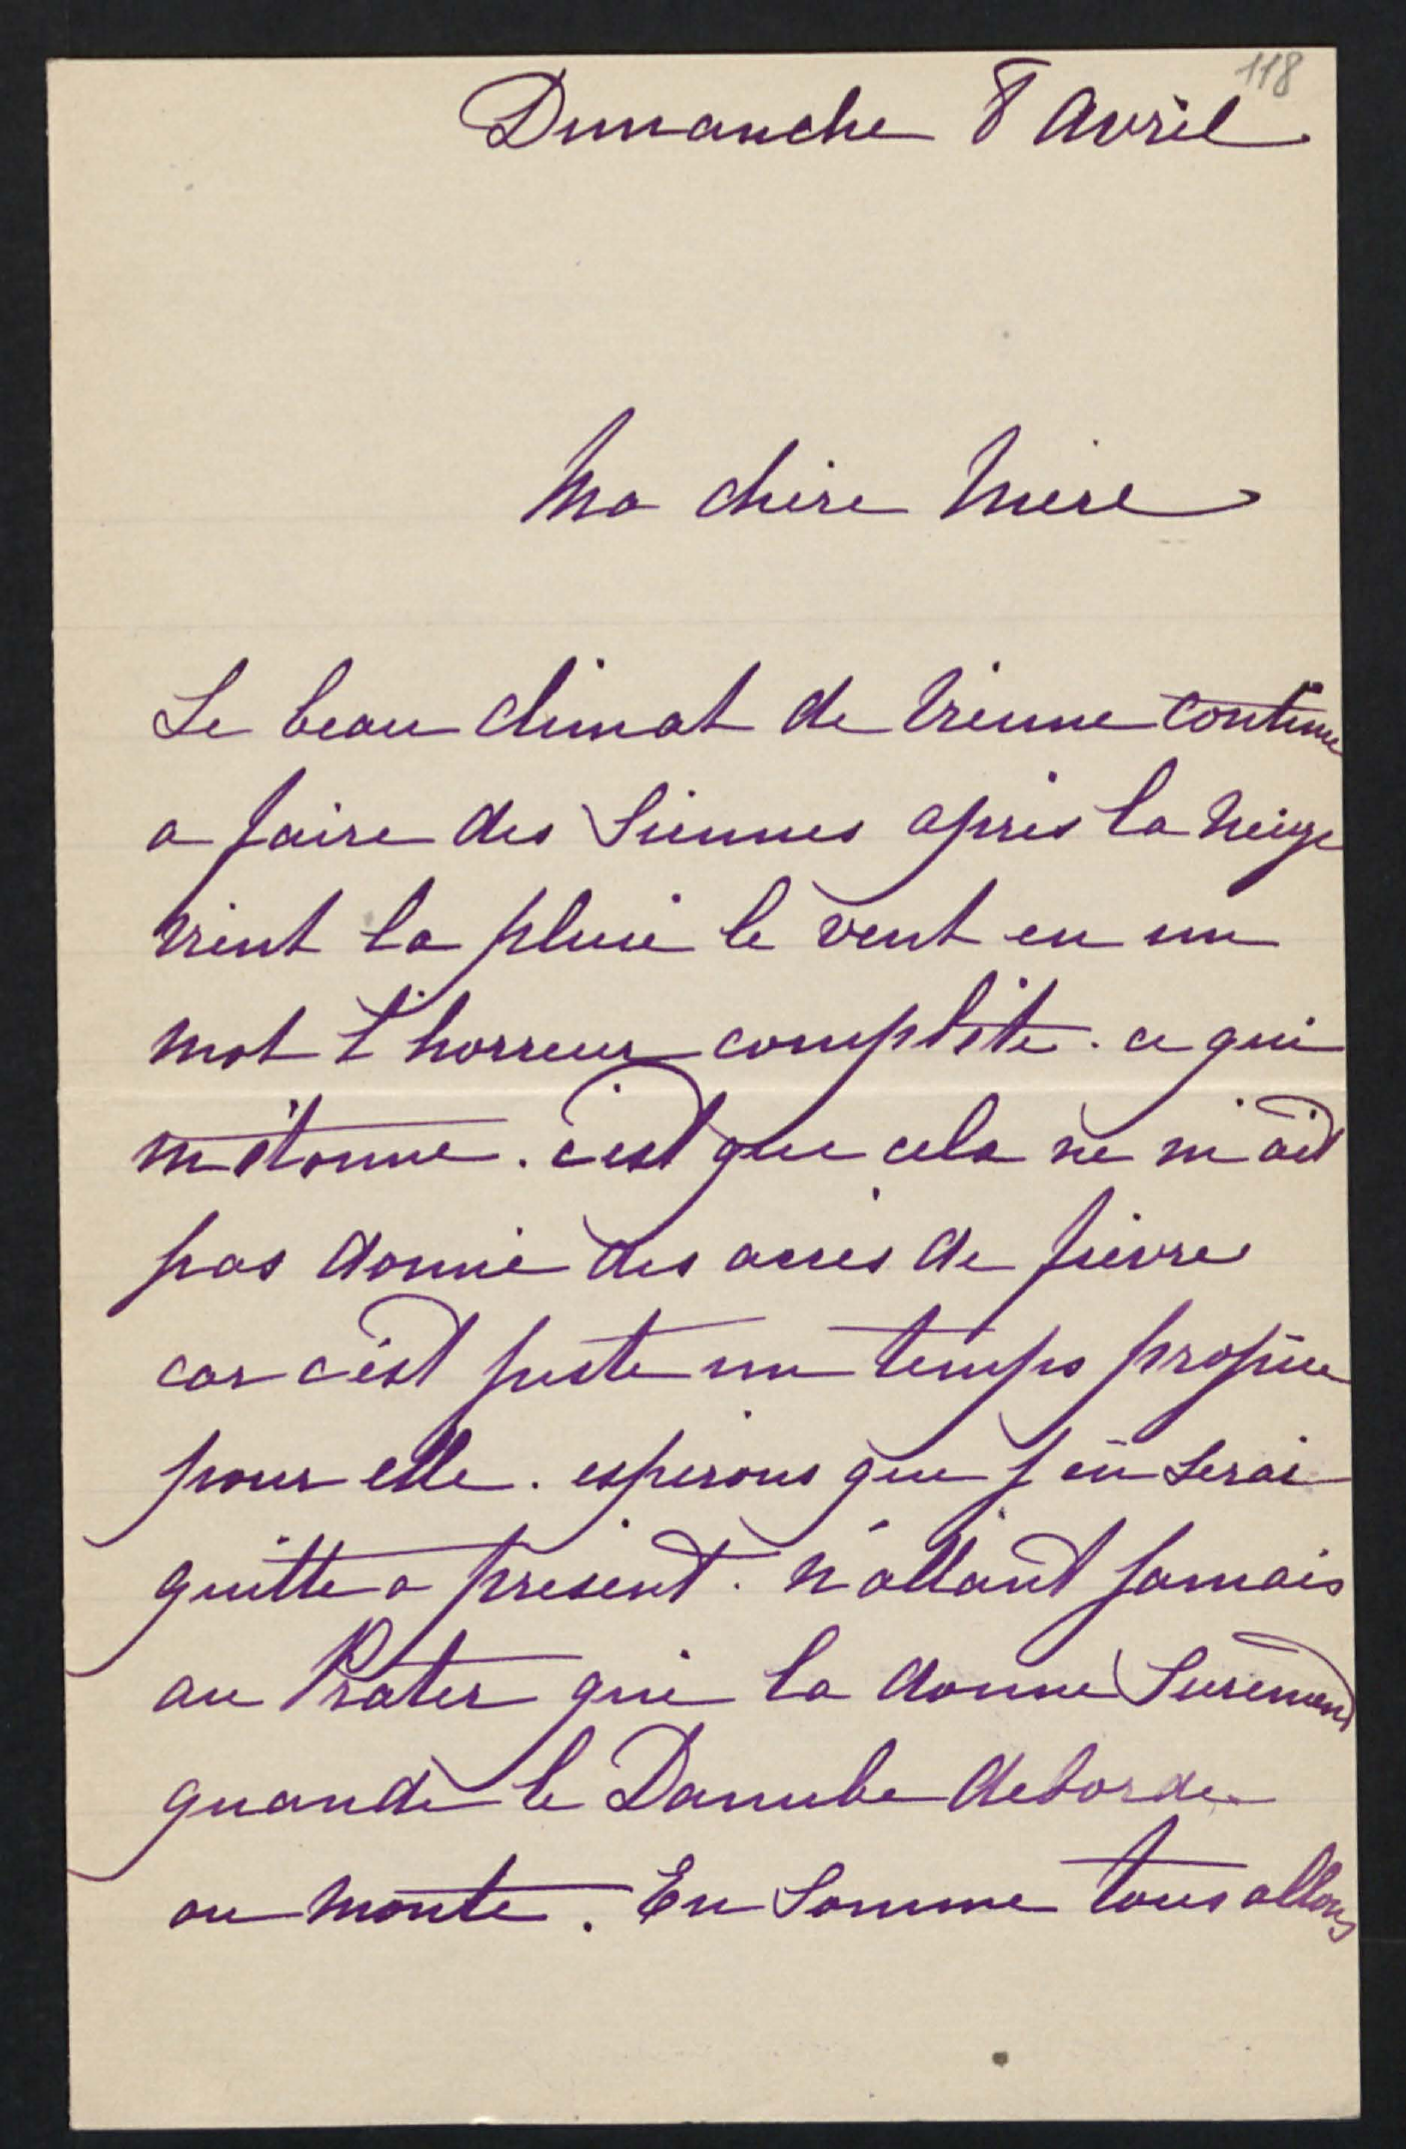 118
Dimanche 8 Avril
Ma chère Mère
Le beau climat de Vienne continue
a faire des Siennes après la Neige
vient la pluie le vent en un
mot l'horreur complète. ce qui
m'étonne. c'est que cela ne m'ait
pas donné des accès de fièvre
car c'est juste un temps propice
pour elle. esperons que j'en serai
quitte a présent. N'allant jamais
au Prater qui la donne Surement
quand le Danube deborde
ou monte. En Somme tous allons